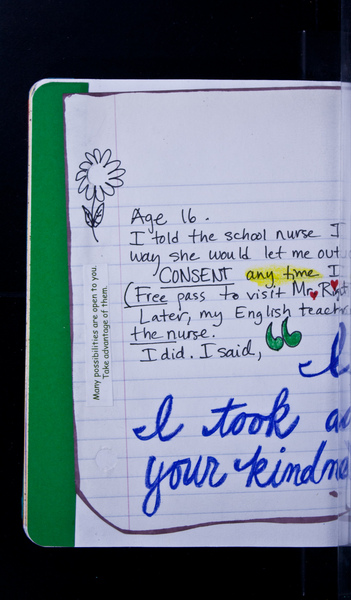 Many possibilities are open to you.
Take advantage of them.
Age 16.
I told the school nurse I
way she would let me out
CONSENT any time I
(Free pass to visit Mr. Right
Later, my English teacher
the nurse.
I did. I said, “
I
I took
your kindne